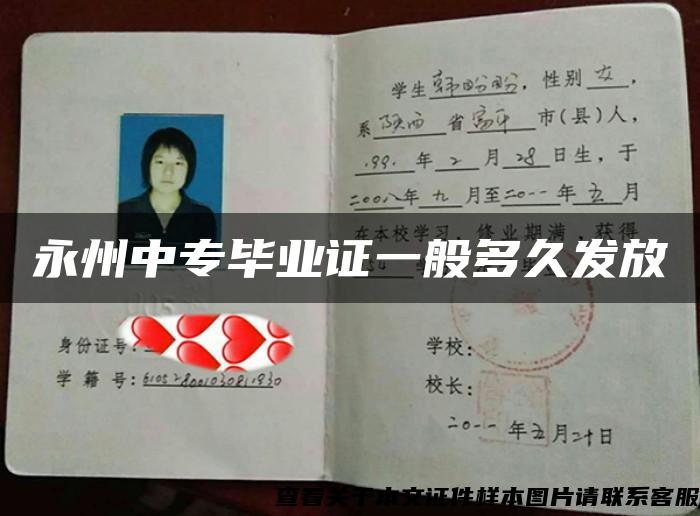 学生韩盼盼，性别女，
系陕西省富平市(县)人，
199.年2月28日生，于
二00八年九月至二0一一年五月
在本校学习，修业期满，获得
永州中专毕业证一般多久发放
身份证号:
学籍号:610528001030811930
学校:
校长:
二0一一年五月二十日
查看关于本文证件样本图片请联系客服